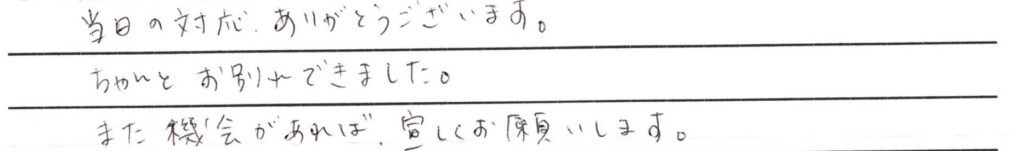 当日の対応、ありがとうございます。
ちゃんとお別れできました。
また機会があれば、宜しくお願いします。